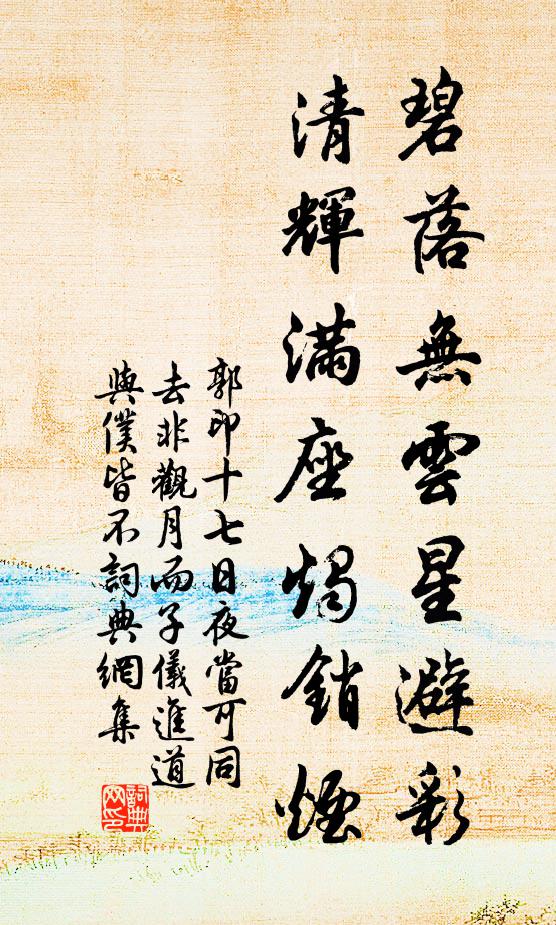 碧落無雲星避彩
清輝滿座燭銷煙
郭印十七日夜當可同
去非觀月而子儀進道
與僕皆不詞典網集
詞典
网印